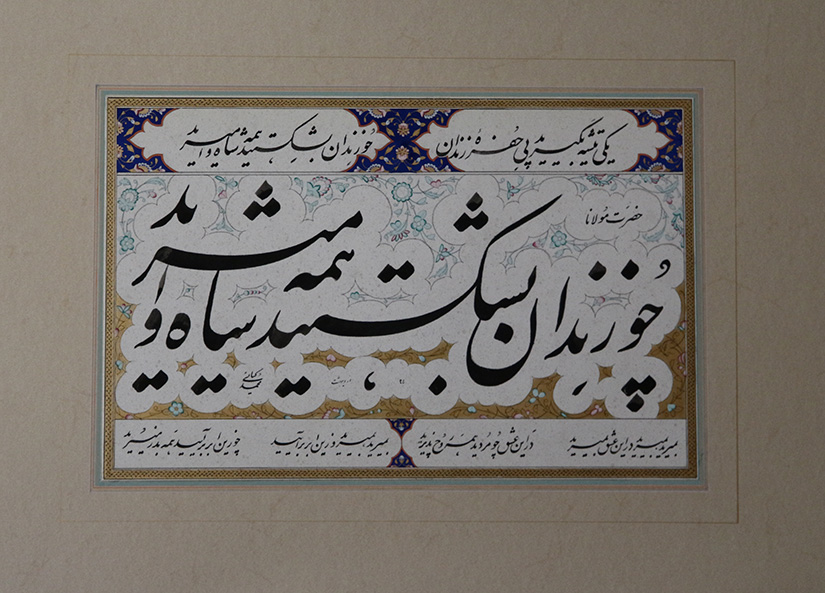 یکی تیشه بگیرید پی حفرهٔ زندان چو زندان بشکستید همه شاه و امیرید
حضرت مولانا
چو زندان بشکستید همه شاه و امیرید
بمیرید بمیرید در این عشق بمیرید در این عشق چو مردید همه روح پذیرید بمیرید بمیرید وزین ابر برآیید چو زین ابر برآیید همه بدر منیرید